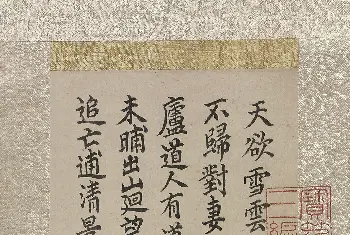 天欲雪雲
不歸對妻
廬道人有道
未晡出山迴望
追亡逋清景